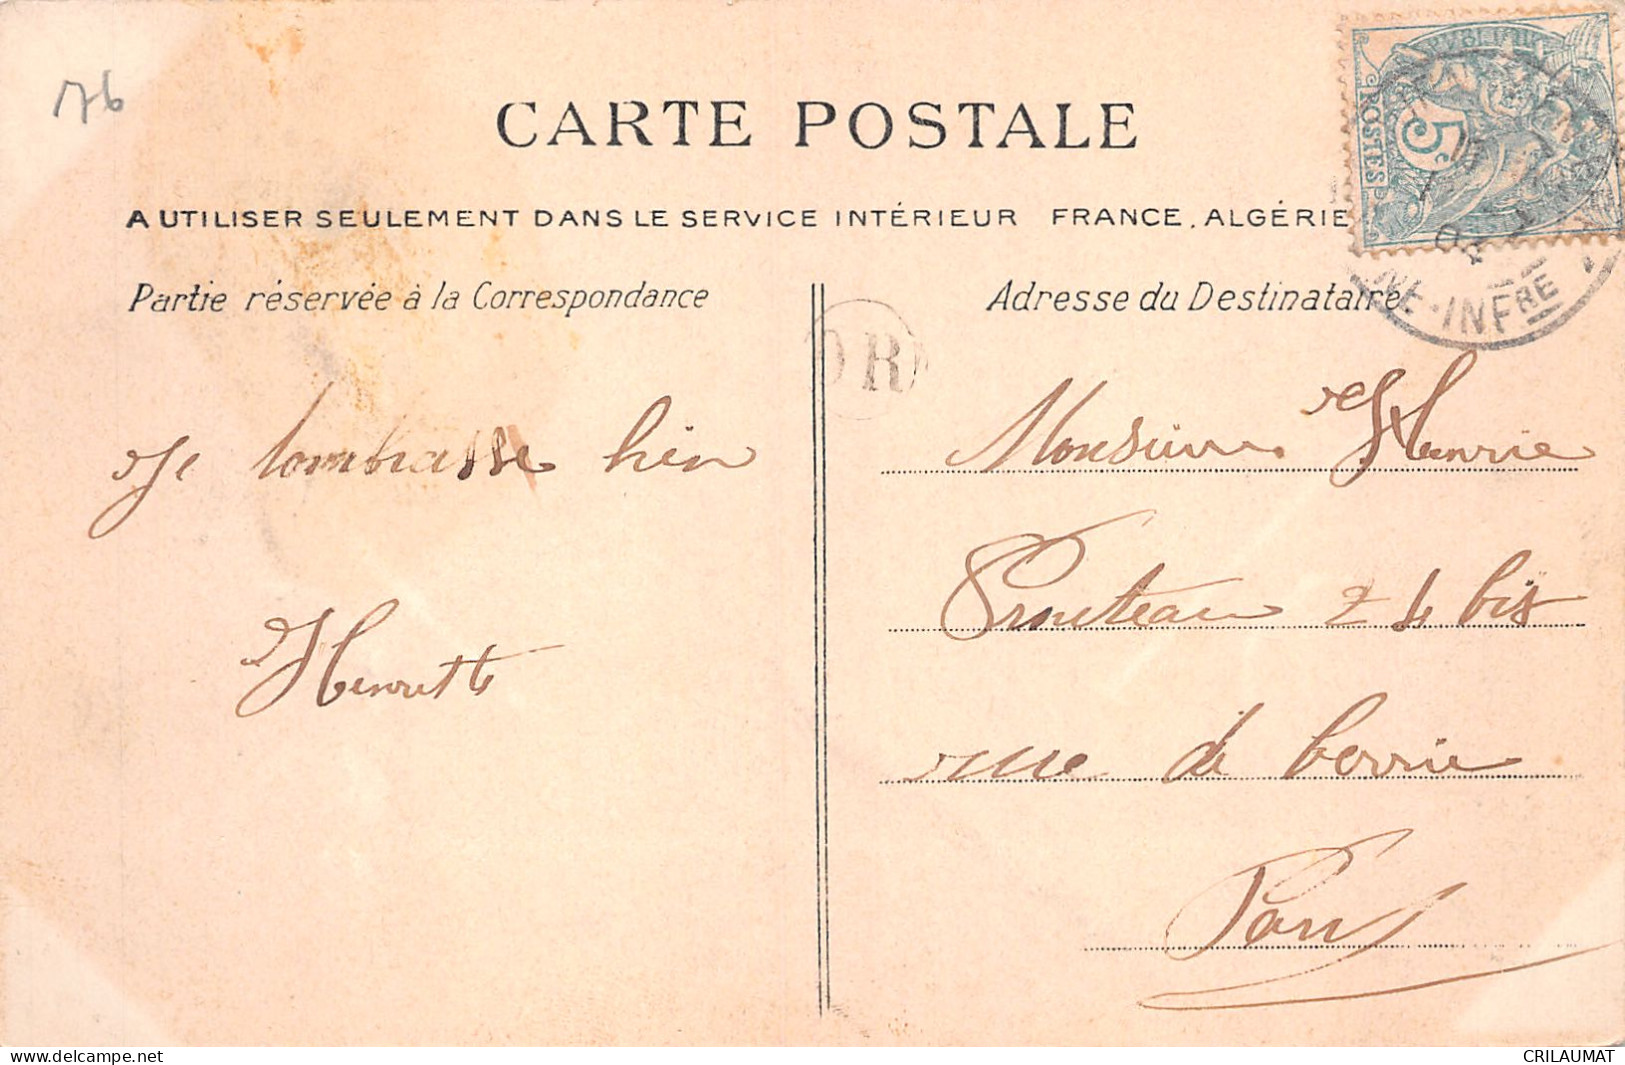 76
CARTE POSTALE
A UTILISER SEULEMENT DANS LE SERVICE INTÉRIEUR FRANCE, ALGÉRIE
POSTES
5c
04
NE-INFRE
Partie réservée à la Correspondance
Adresse du Destinataire
OR
Je tombrasse bien
Henrette
Monsieur Henrie
Prouteau 24 bis
rue de berrie
Paris
CRILAUMAT
delcampe.net